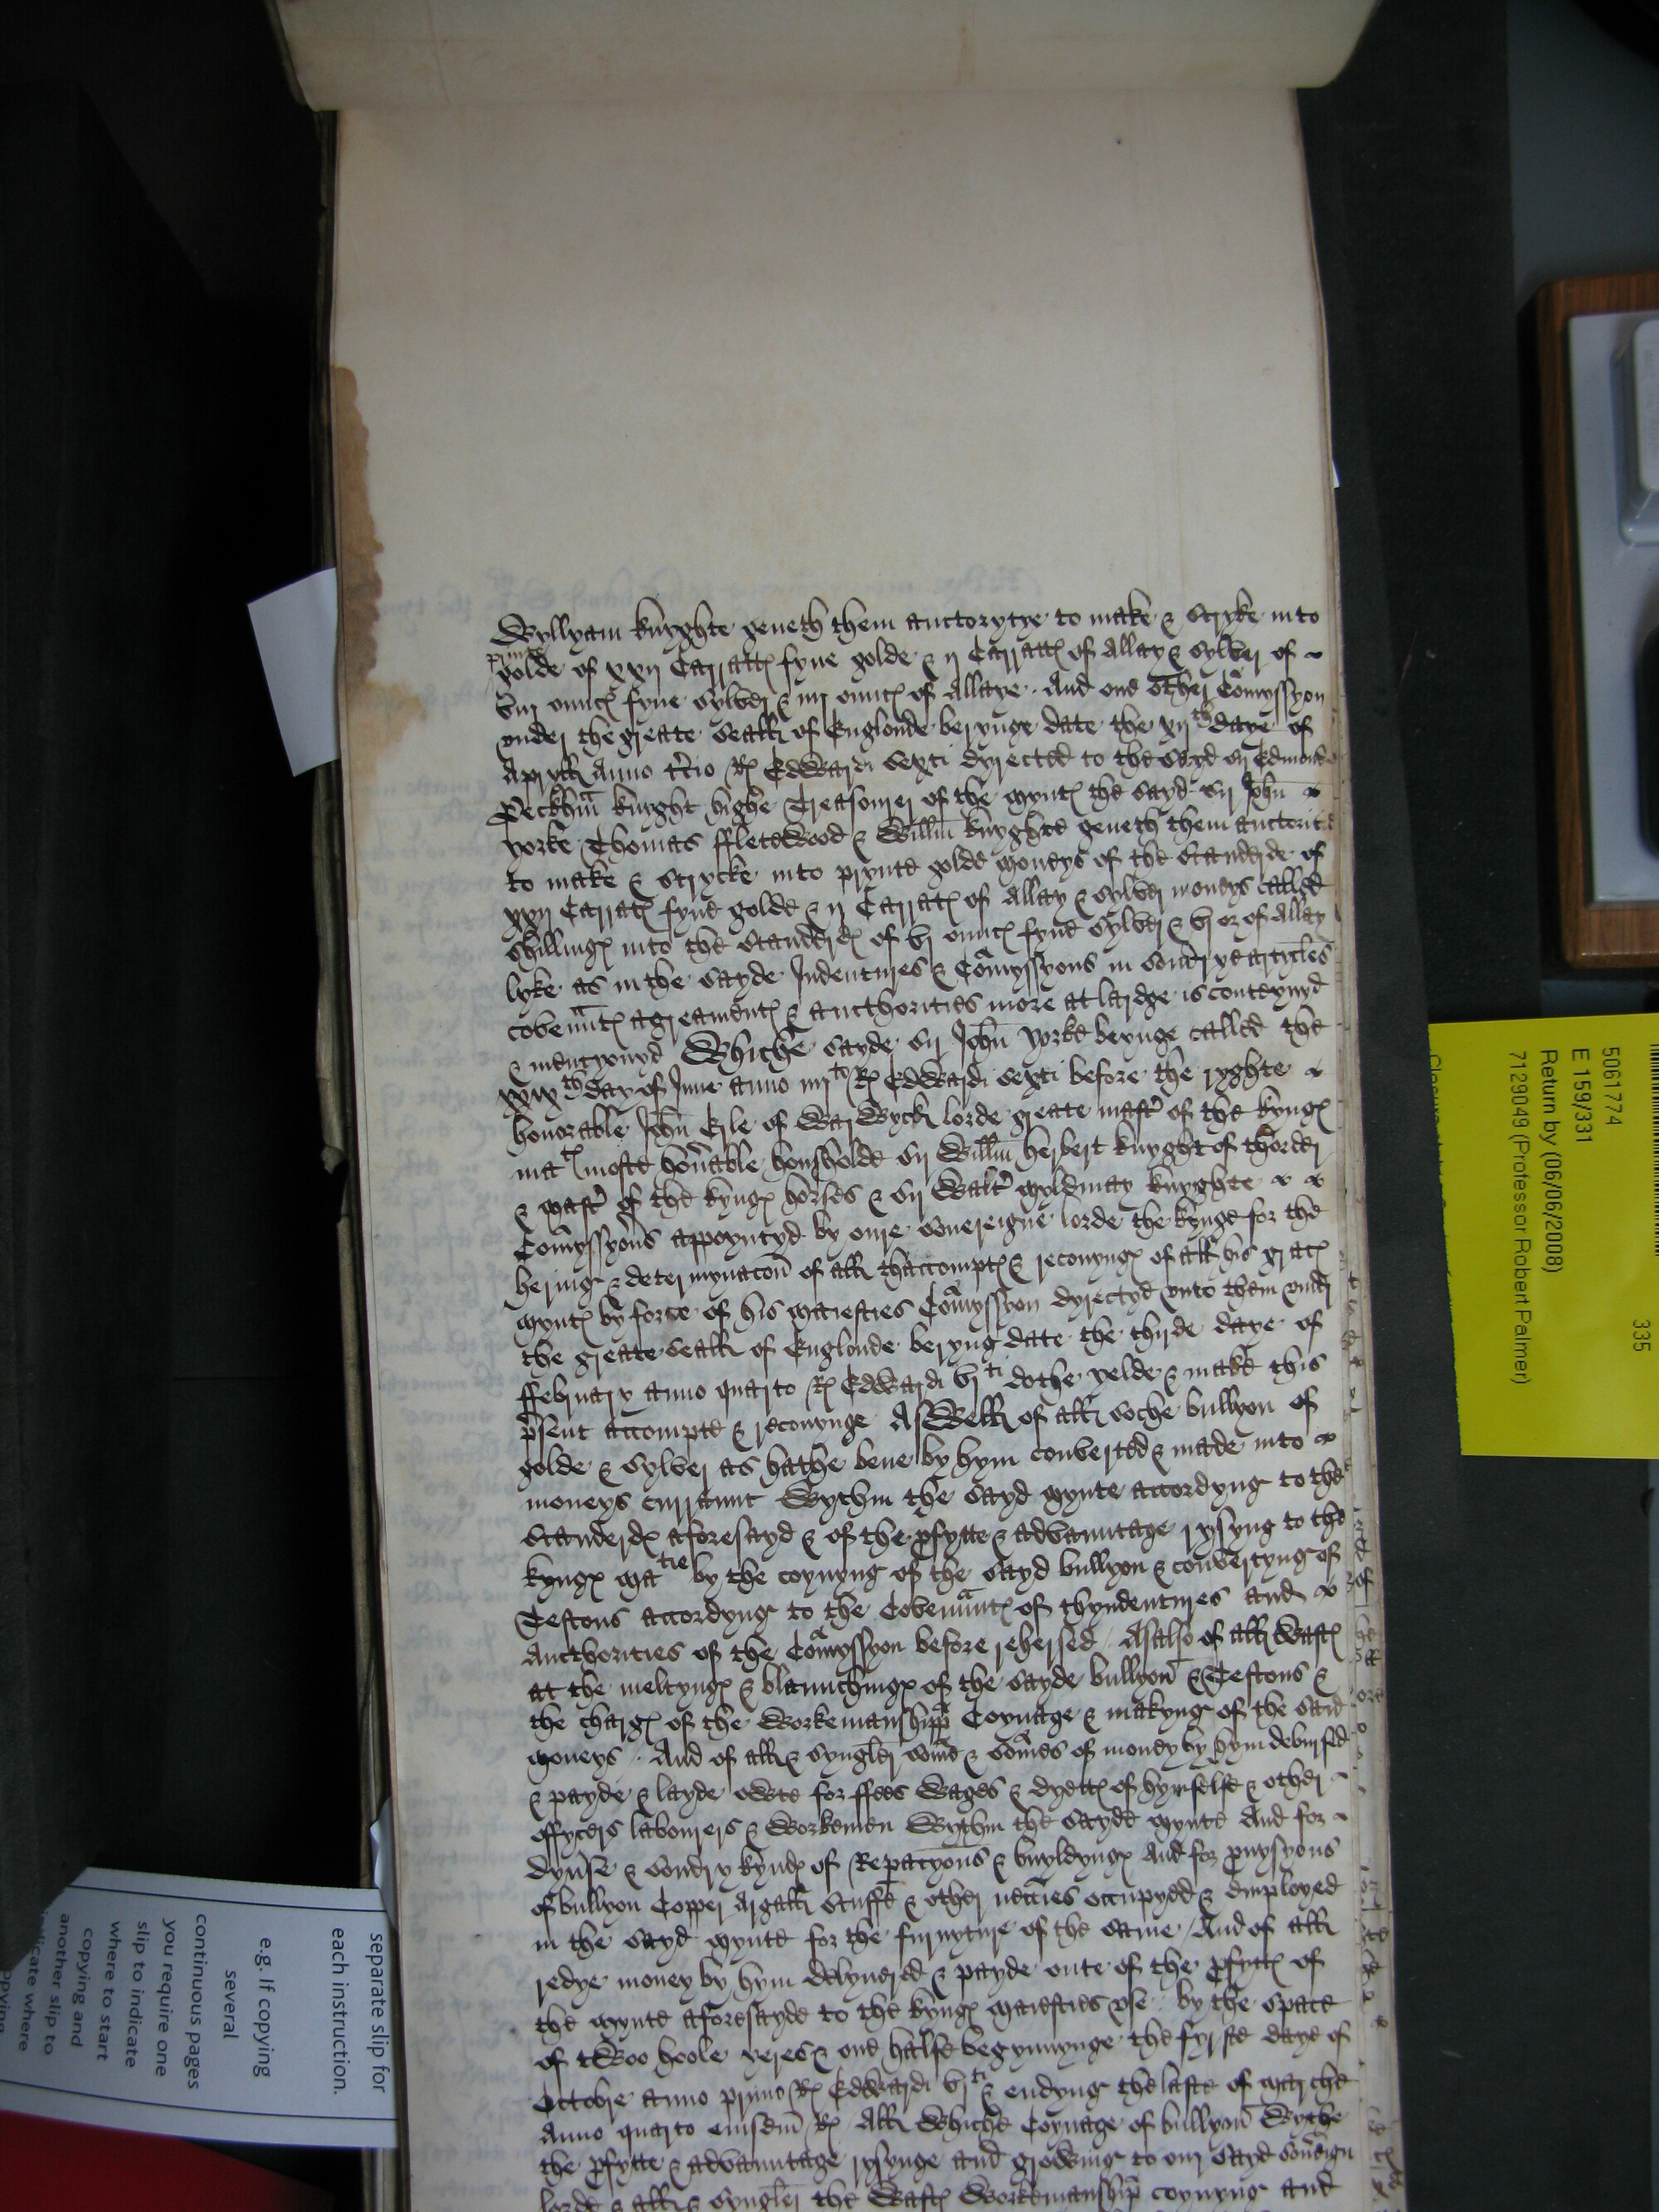 Wyllyam knyghte geveth them auctorytye to make & stryke into
prynte
golde of xxij Carrattes fyne golde & ij Carrattes of Allay & sylver of
viij ounces fyne sylver & iiij ounces of Allaye. And one other Comyssyon
under the greate Seall of Englonde berynge date the xijth daye of
Apryll Anno tercio R Edwardi sexti dyrected to the sayd Sir Edmond
Peckham knyght highe Treasourer of the myntes the sayd Sir John
yorke Thomas ffletewood & Willm knyghte geveth them auctorite
to make & strycke into prynte golde moneys of the standerde of
xxij Carrates fyne golde & ij Carrates of Allay & sylver moneys called
shillinges into the standerdes of vj ounces fyne sylver & vj oz of Allay
lyke as in the sayde Indentures & Comyssyons in sondrye artycles
covenntes agreamentes & aucthorities more at lardge is conteynyd
& mencyonyd Whiche sayde Sir John yorke beynge called the
xxixth day of June anno iiijto R Edwardi sexti before the ryghte
honorable John Erle of Warwyck lorde greate master of the kynges
maties moste honorable housholde Sir Willm herbert knyght of thorder
& master of the kynges horses & Sir Walter myldmay knyghte
Comyssyoners appoyntyd by oure sovereigne lorde the kynge for the
heringe & determynacon of all thaccomptes & reconynges of all his graces
myntes by force of his maiesties Comyssyon dyrectyd unto them under
the greate Seall of Englonde beryng date the thirde daye of
ffebruary anno quarto R Edwardi vjti dothe yelde & make this
present accompte & reconynge Aswell of all soche bullyon of
golde & sylver as hathe bene by hym converted & made into
moneys currannt Wythin the sayd mynte accordyng to the
standerdes aforesayd & of the profytte & advauntage rysyng to the
kynges matie by the coynyng of the sayd bullyon & convertyng of
Testons accordyng to the Covenntes of thyndentures and
Aucthorities of the Comyssyon before rehersed / Asalso of all Wastes
at the meltynges & blaunchinges of the sayde bullyon & Testons &
the charges of the Workemanshipp Coynage & makyng of the said
moneys. And of all & syngler some & somes of money by hym debursed
& payde & layde owte for ffees Wages & dyettes of hymselfe & other
offycers labourers & Workemen Wythin the sayde mynte And for
dyverse & sondry kyndes of Repacyons & buyldynges And for provysyons
of bullyon Copper Argall stuffe & other necessaries occupyed & employed
in the sayd mynte for the furnyture of the same / And of all
redye money by hym delyvered & payde oute of the profyttes of
the mynte aforesayde to the kynges maiesties use by the space
of twoo hoole yeres & one halfe begynnynge the fyrste daye of
Octobre anno primo R Edwardi vjti & endyng the laste of marche
Anno quarto eiusdem R All Whiche Coynage of bullyon Wythe
the profytte & advauntage rysynge and growing to our sayd sovereign
lorde & all & syngler the Wastes Workemanshipp coynyng and
5061774
E 159/331
Return by (06/06/2008)
7129049 (Professor Robert Palmer)
335
separate slip for
each instruction.
e.g. If copying
several
continuous pages
you require one
slip to indicate
where to start
copying and
another slip to
indicate where